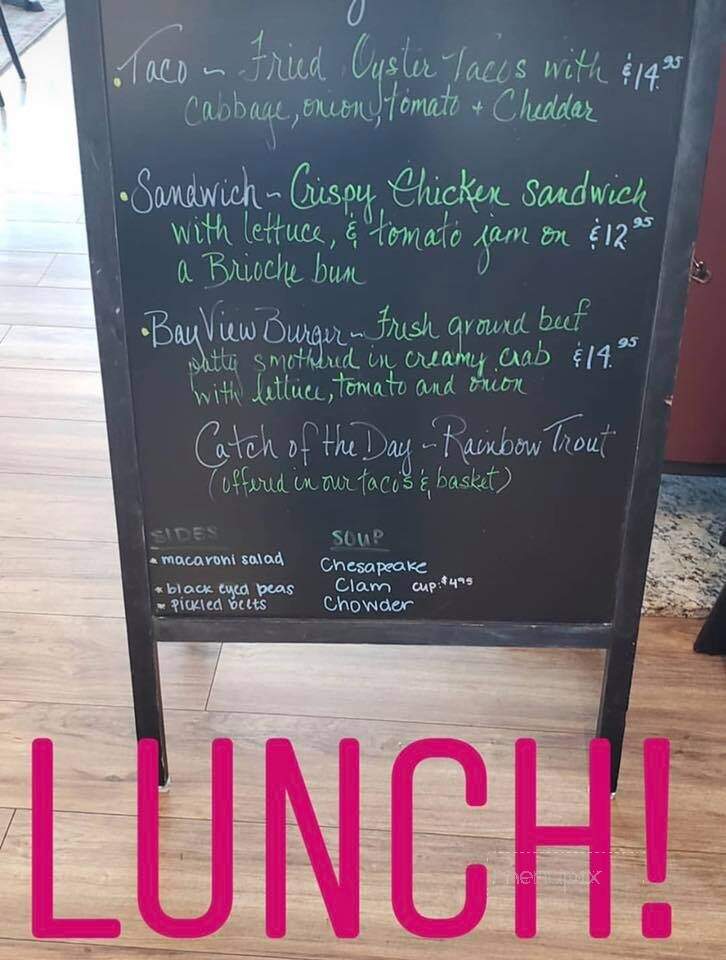 Taco ~ Fried Oyster Tacos with $14.95
cabbage, onion, tomato + Cheddar
Sandwich ~ Crispy Chicken sandwich
with lettuce, & tomato jam on $12.95
a Brioche bun
Bay View Burger ~ Fresh ground beef
patty smothered in creamy crab $14.95
with lettuce, tomato and onion
Catch of the Day ~ Rainbow Trout
(offered in our tacos & basket)
SIDES
* macaroni salad
* black eyed peas
* pickled beets
SOUP
Chesapeake
Clam cup: $4.95
Chowder
LUNCH!
menupix